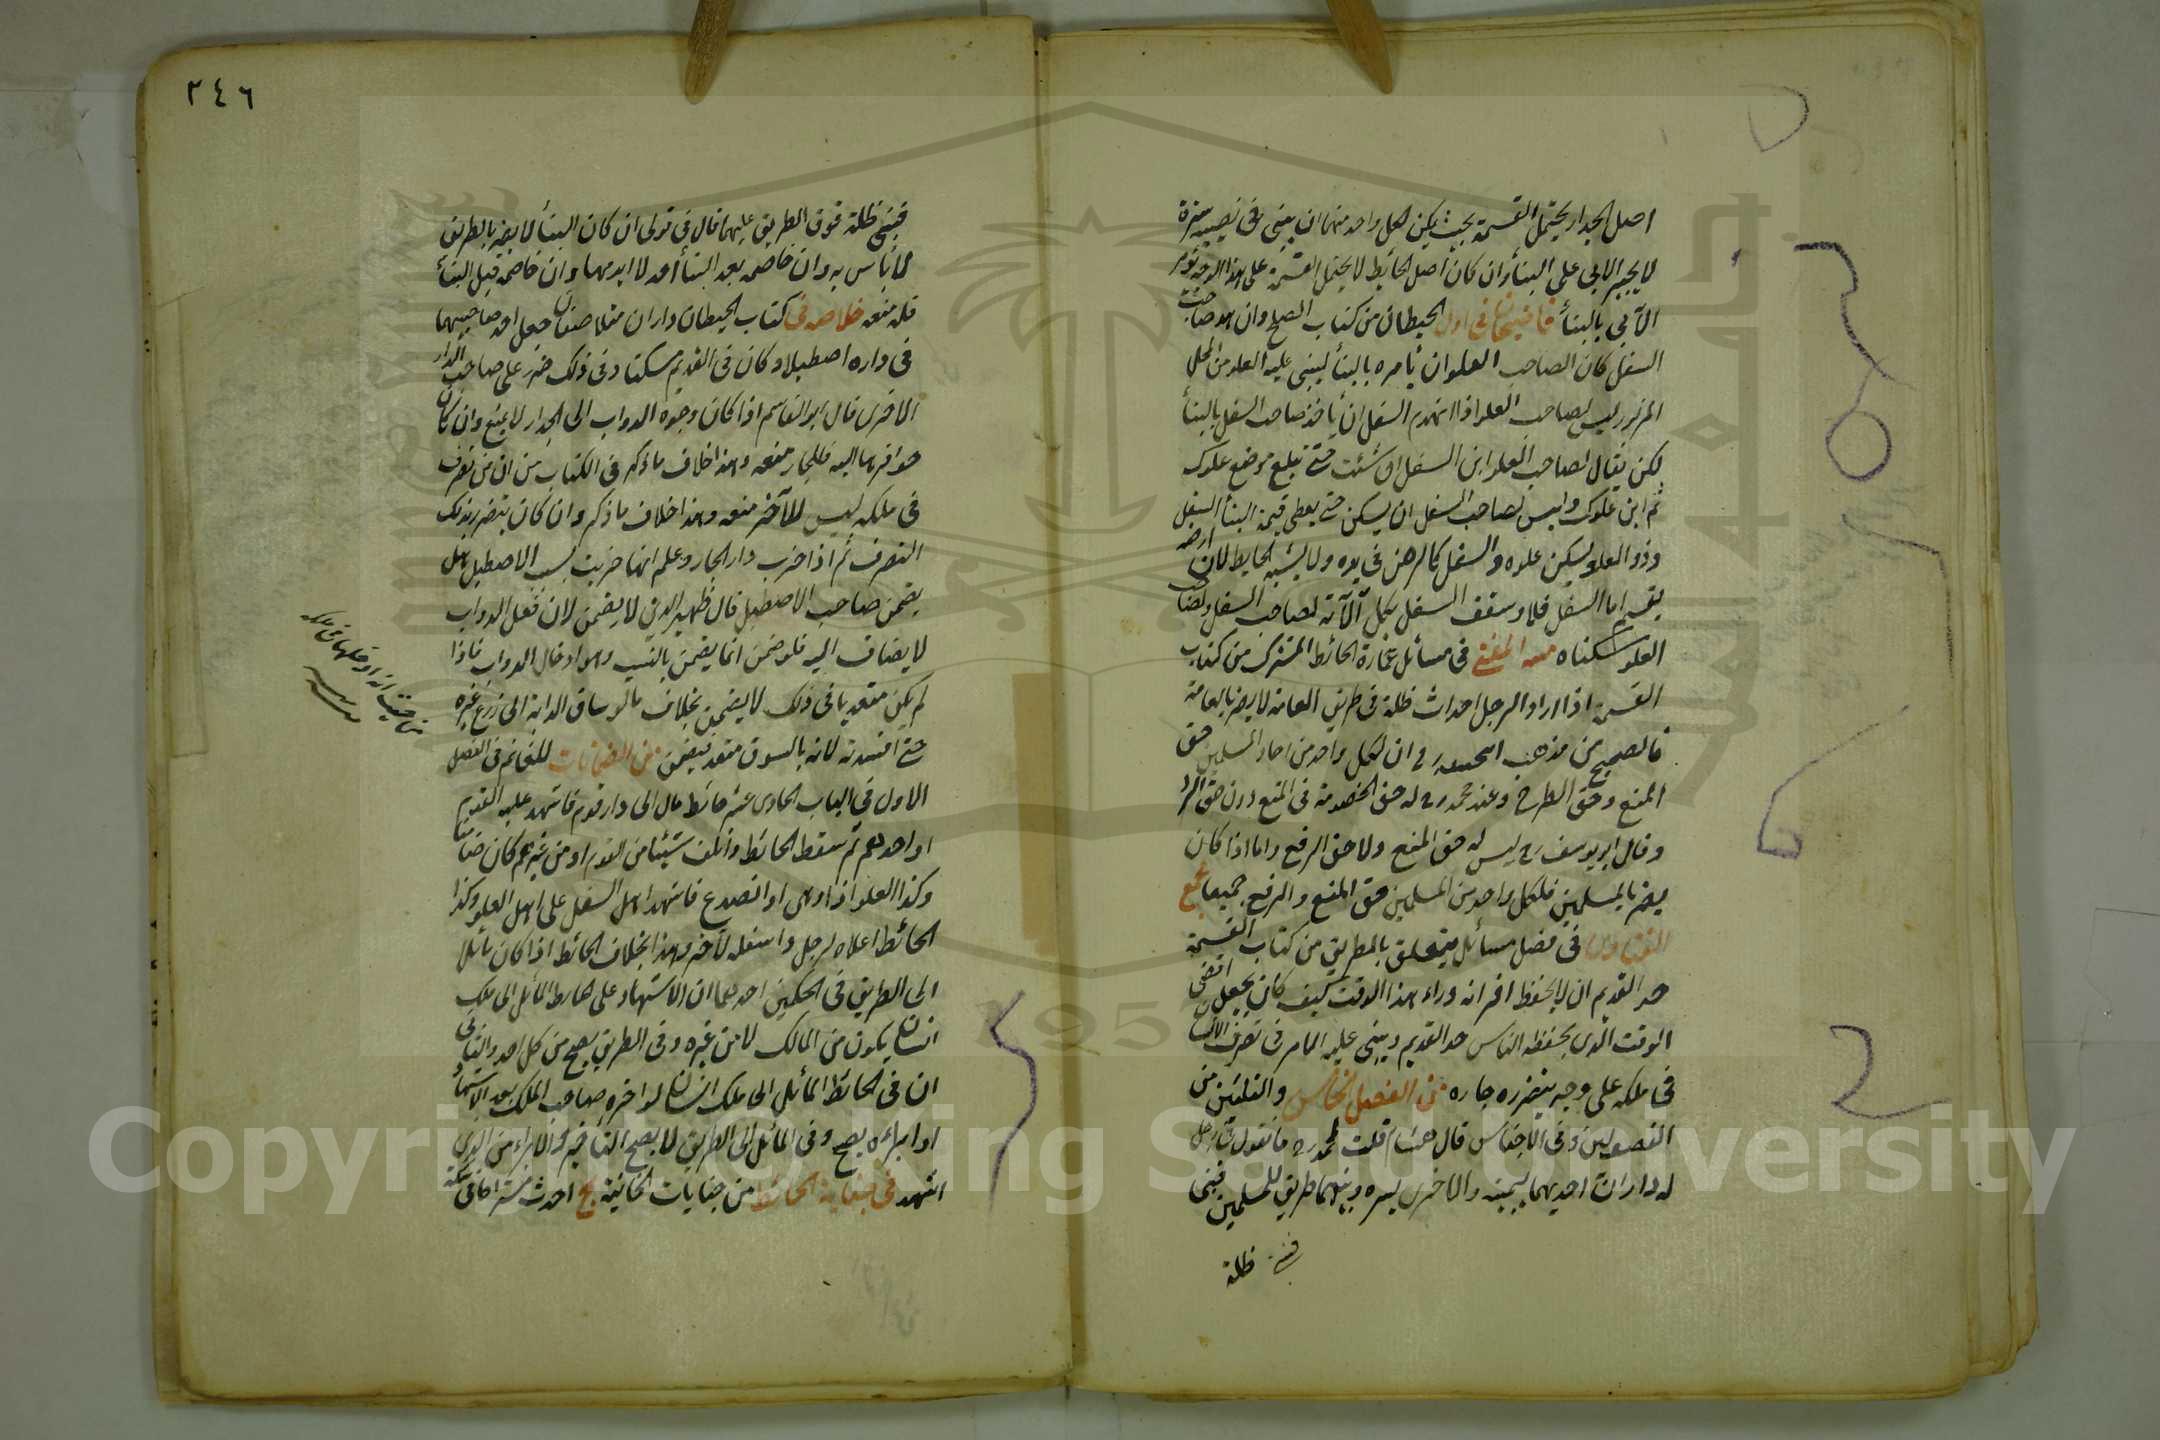 اصل الجدار يحتمل القسمة بحيث يكن لكل واحد منهما ان يبنى في نصيبه سترة
لا يجبر الابى على البناء وان كان اصل الحائط لا يحتمل القسمة على هذا الوجه يؤمر
الآبى بالبناء قاضيخان في اول الحيطان من كتاب الصلح وان هد صاحب
السفل كان لصاحب العلو ان يأمره بالبناء ليبنى عليه العلو من المحل
المزبور ليس لصاحب العلو اذا انهدم السفل ان يأخذ صاحب السفل بالبناء
لكن يقال لصاحب العلو ابن السفل ان شئت حتى تبلغ موضع علوك
ثم ابن علوك وليس لصاحب السفل ان يسكن حتى يعطى قيمة البناء السفل
وذو العلو يسكن علوه والسفل كالرهن في يده ولا يشبه الحايط لان ارضه
يقسم اما السفل فلا وسقف السفل بكل آلآته لصاحب السفل ولصاحب
العلو سكناه منية المفتى في مسائل عمارة الحائط المشترك من كتاب
القسمة اذا اراد الرجل احداث ظلة في طريق العامة لا يضر بالعامة
فالصحيح من مذهب ابى حنيفة رح ان لكل واحد من احاد المسلمين حق
المنع وحق الطرح وعند محمد رح له حق الخصومة في المنع دون حق الرد
وقال ابو يوسف رح ليس له حق المنع ولا حق الرفع واما اذا كان
يضر بالمسلمين فلكل واحد من المسلمين حق المنع والرفع جميعا مجمع
الفتاوى في فصل مسائل يتعلق بالطريق من كتاب القسمة
حد القديم ان لا يحفظ اقرانه وراء هذا الوقت كيف كان يجعل اقصى
الوقت الذى يحفظه الناس حد القديم ويبنى عليه الامر في تصرف الانسان
في ملكه على وجه يتضرر به جاره من الفصل الخامس والثلثين من
الفصولين وفى الاجناس قال هشام قلت لمحمد رح ما تقول في رجل
له داران احديهما يمينه والاخرى يسره وبينهما طريق للمسلمين فبنى
فبنى ظلة
٢٤٦
فبنى ظلة فوق الطريق عليهما قال في قولى ان كان البناء لا يضر بالطريق
لا بأس به وان خاصمه بعد البناء احد لا اهدمها وان خاصمه قبل البناء
فله منعه خلاصه فى كتاب الحيطان داران متلاصقان جعل احد صاحبيهما
في داره اصطبلا وكان فى القديم مسكنا وفى ذلك ضرر على صاحب الدار
الاخرى قال ابو القاسم اذا كان وجوه الدواب الى الجدار لا يمنع وان كان
حوافرها اليه فللجار منعه وهذا خلاف ما ذكر فى الكتاب من ان من تصرف
في ملكه ليس للآخر منعه وهذا خلاف ما ذكر وان كان يتضرر بذلك
التصرف ثم اذا خرب دار الجار وعلم انها خربت بسبب الاصطبل هل
يضمن صاحب الاصطبل قال ظهير الدين لا يضمن لان فعل الدواب
لا يضاف اليه فلو ضمن انما يضمن بالتسبب وهو ادخال الدواب فاذا
لم يكن متعديا فى ذلك لا يضمن بخلاف ما لو ساق الدابة الى زرع غيره
حتى افسدته لانه بالسوق متعد فيضمن من الضمانات للغانم فى الفصل
الاول في الباب الحادى عشر حائط مال الى دار قوم فاشهد عليه القوم
او احدهم ثم سقط الحائط واتلف شيئا من القوم او من غيرهم كان ضامنا
وكذا العلو اذا وهى او انصدع فاشهد اهل السفل على اهل العلو وكذا
الحائط اعلاه لرجل واسفله لآخر وهذا بخلاف الحائط اذا كان مائلا
الى الطريق فى الحكمين احدهما ان الاشهاد على حائط المائل الى ملك
انسان يكون من المالك لا من غيره وفى الطريق يصح من كل احد والثانى
ان في الحائط المائل الى ملك انسان لو اخره صاحب الملك بعد الاشهاد
او ابراءه يصح وفى المائل الى الطريق لا يصح التأخير والابراء من الذى
اشهد فى جناية الحائط من جنايات الخانية احدث مستراحا في سكة